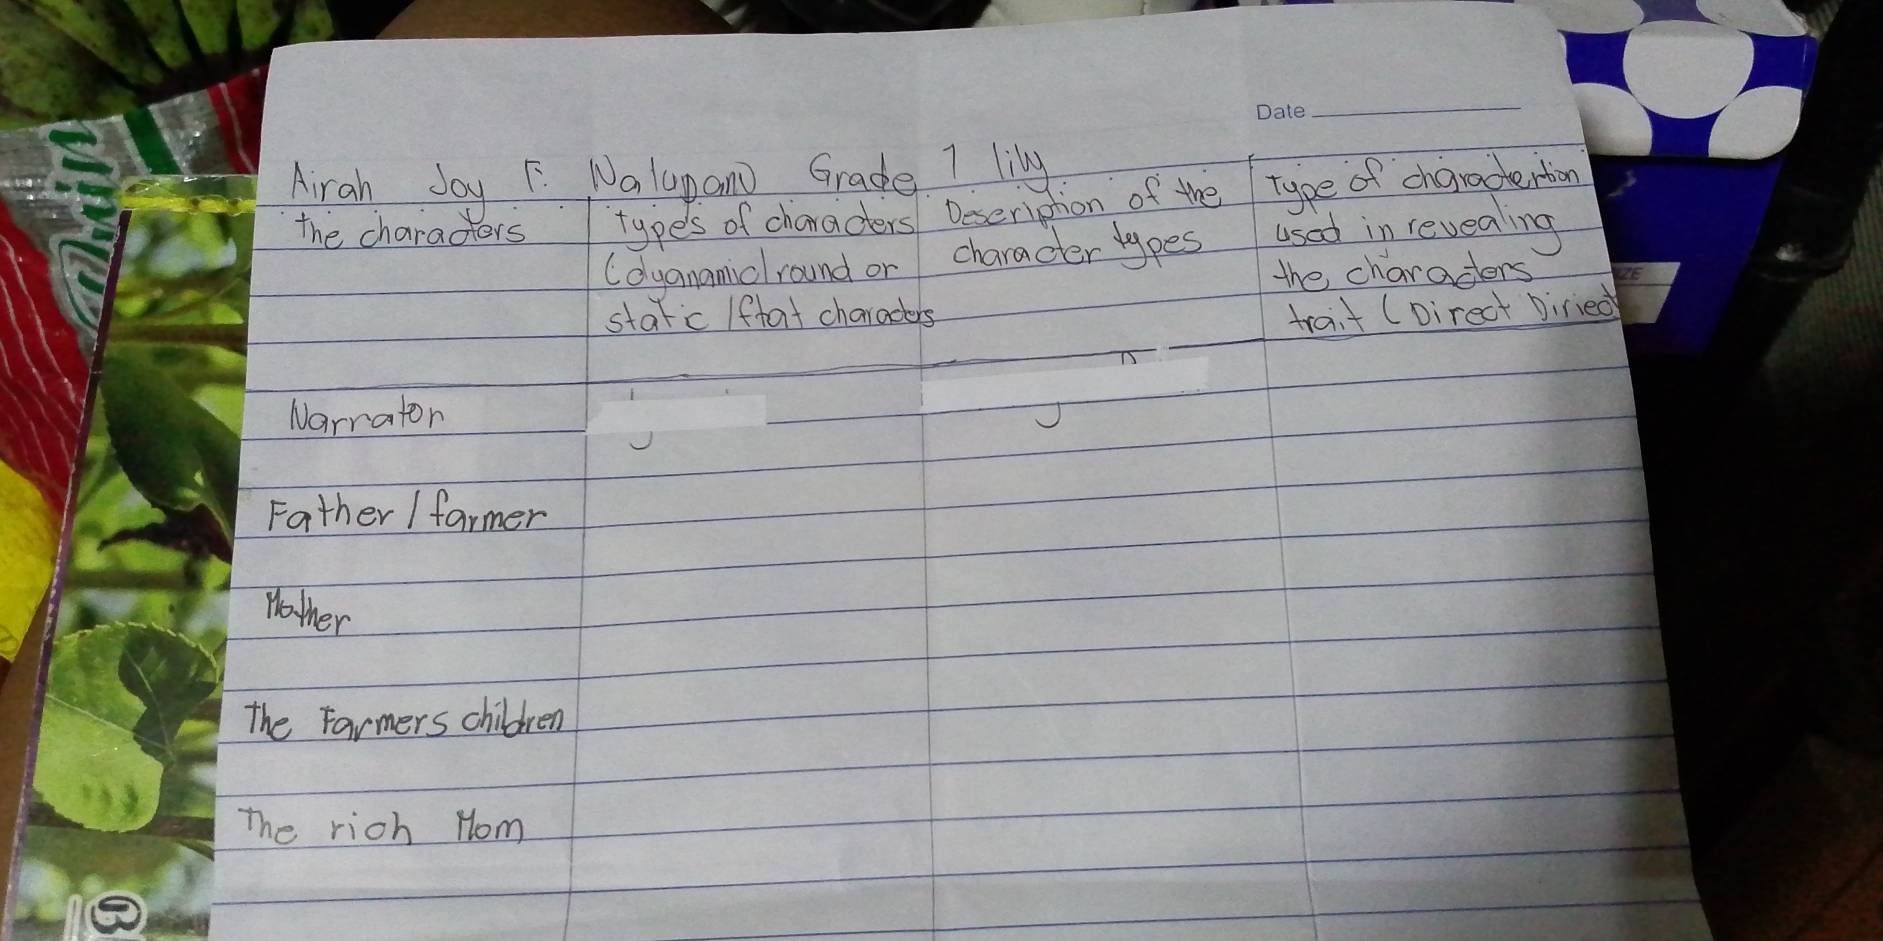 Date
Airah Joy F. Nalupano Grade 7 lily
The characters
Types of characters
(dyanamic/round or
static /ftat characters
Description of the
character types
Type of charactertion
used in revealing
the characters
trait (Direct Diriect
Narrator
Father / farmer
Mother
The Farmers children
The rich Mom